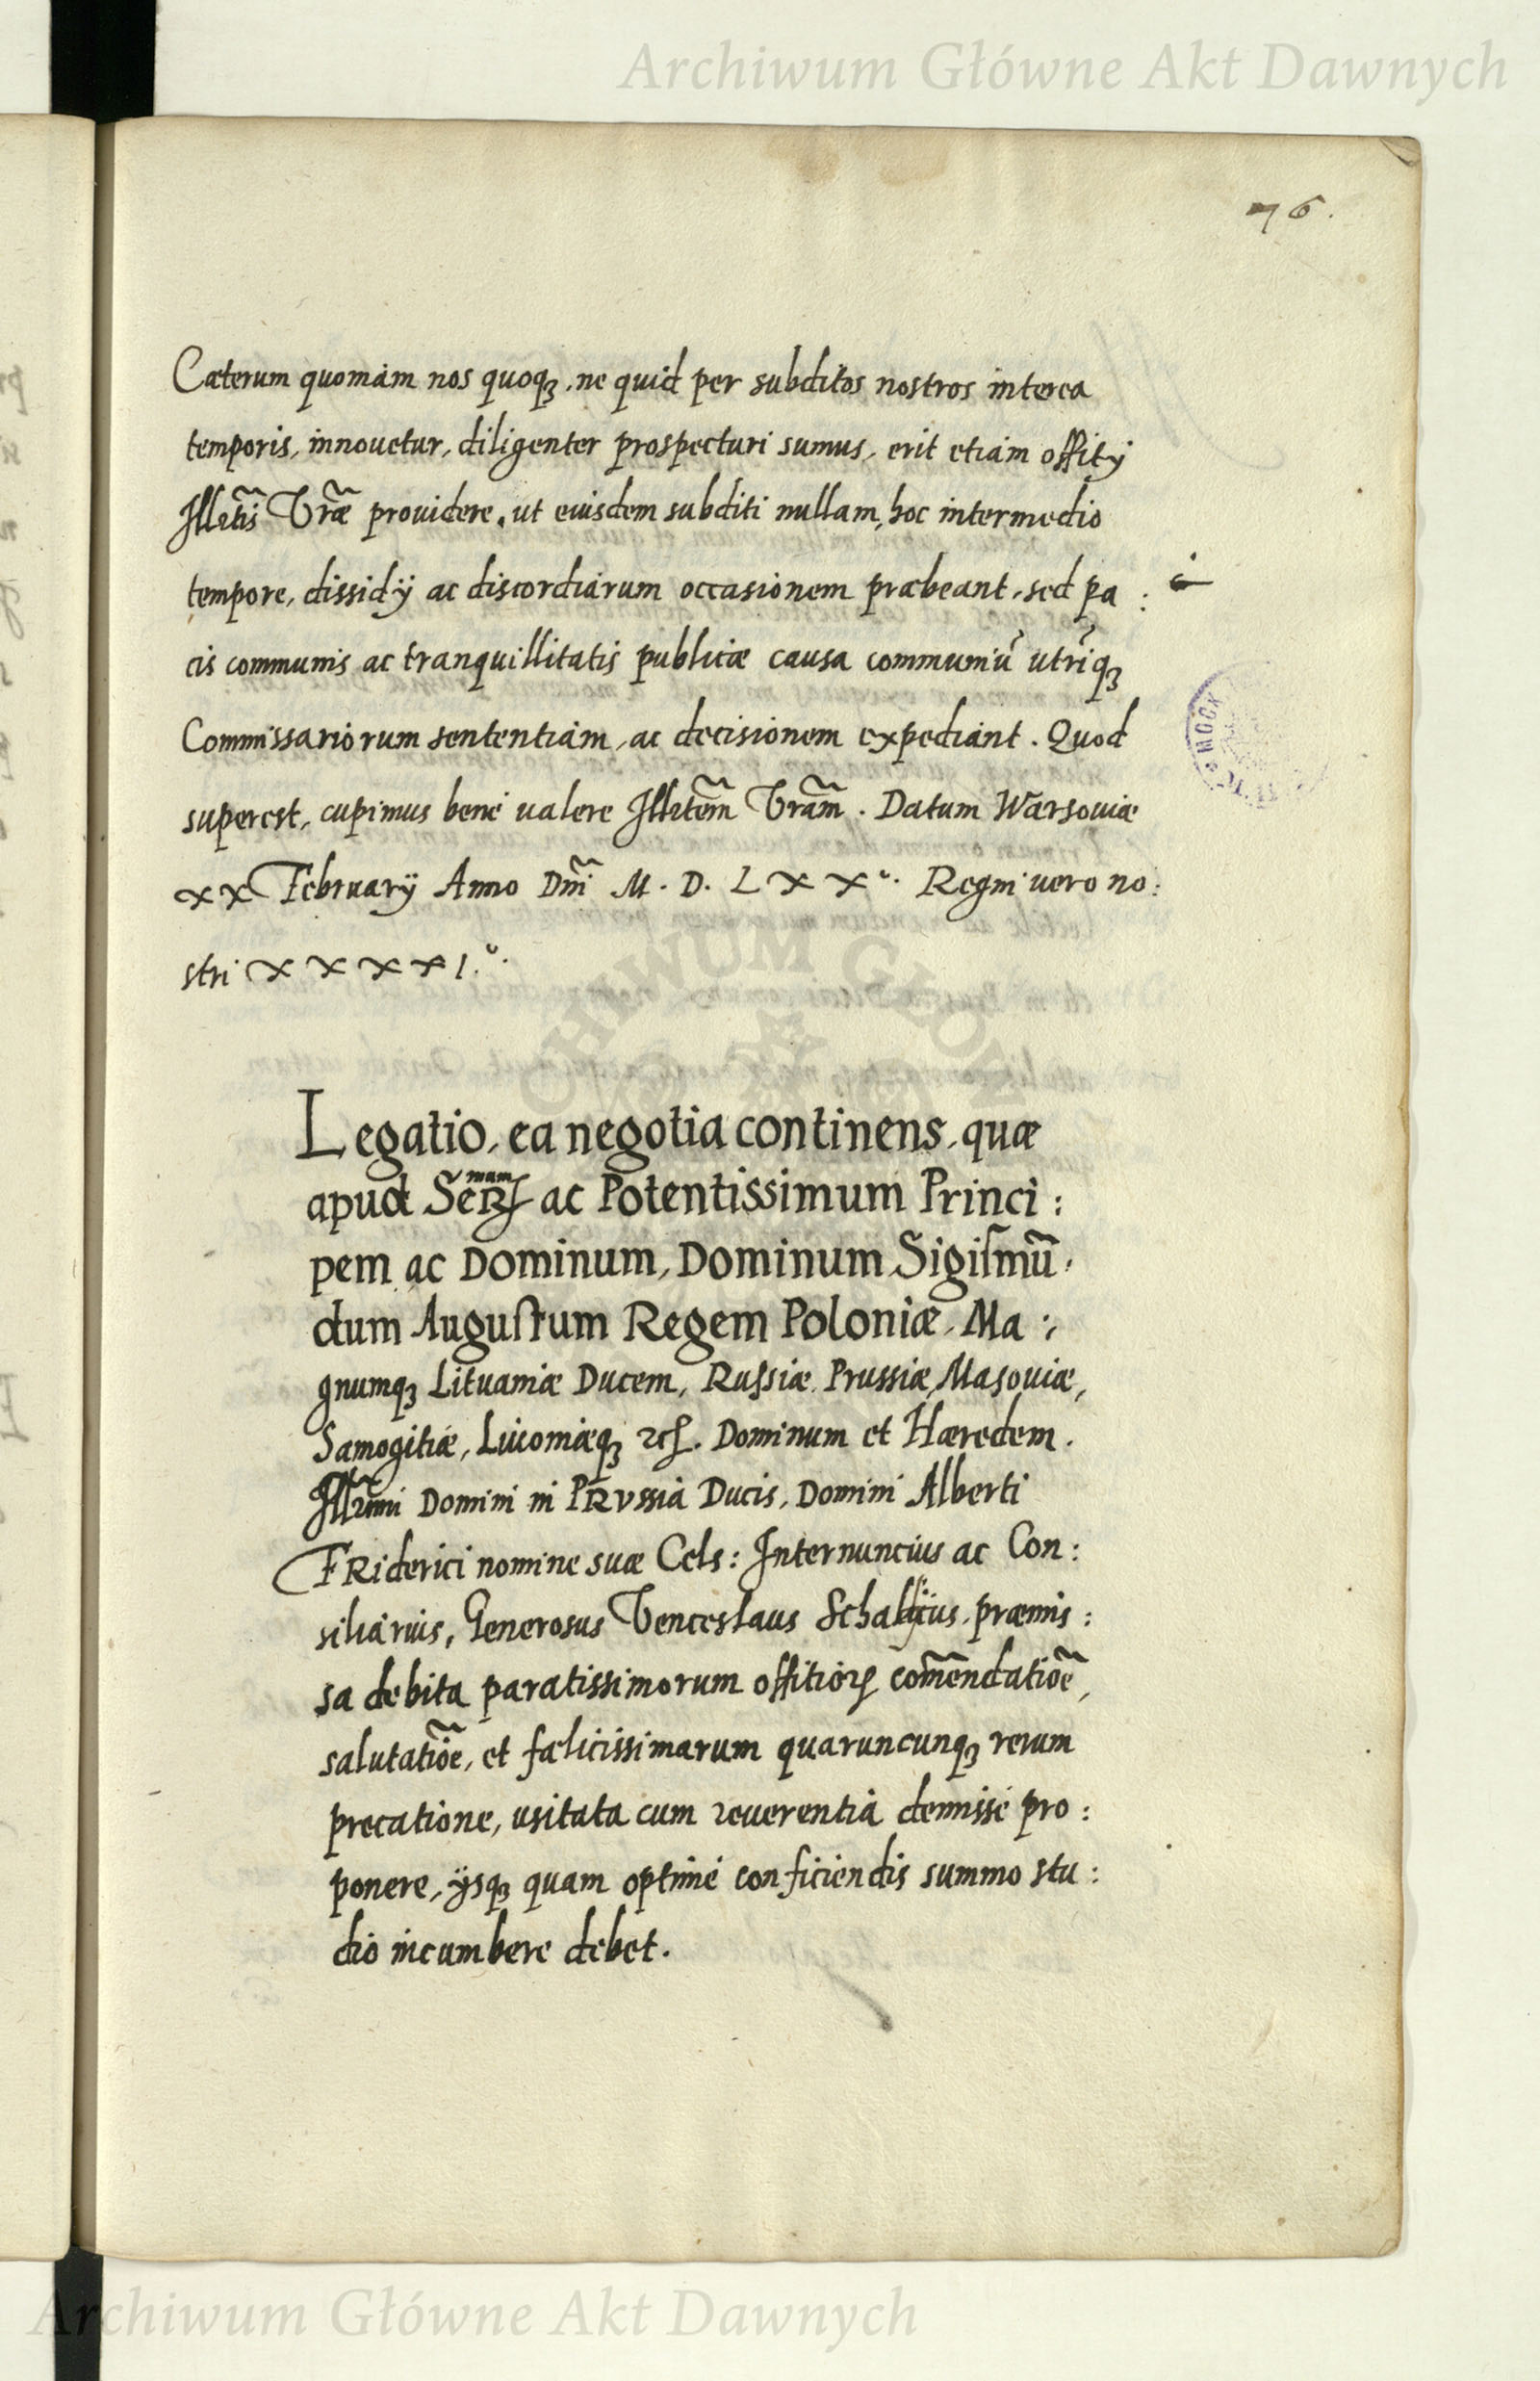 Archiwum Główne Akt Dawnych
76.
Cæterum quoniam nos quoqꝫ, ne quid per subditos nostros interea
temporis, innouetur, diligenter prospecturi sumus, erit etiam offitÿ
Illrĩtis Vr̃æ prouidere, ut eiusdem subditi nullam, hoc intermedio
tempore, dissidÿ ac discordiarum occasionem præbeant, sed pa:
cis communis ac tranquillitatis publicæ causa communiũ utriqꝫ
Commissariorum sententiam, ac decisionem expediant. Quod
superest, cupimus bene ualere Illrĩtem Vrãm. Datum Warsouiæ
xx Februarÿ Anno Dnĩ M. D. L X X°. Regni uero no:
stri X X X X I.°.
Legatio, ea negotia continens, quæ
apud Ser.mum ac Potentissimum Princi:
pem ac Dominum, Dominum Sigiſmũ
dum Auguſtum Regem Poloniæ, Ma:
gnumqꝫ Lituaniæ Ducem, Ruſsiæ, Prussiæ, Masouiæ,
Samogitiæ, Liuoniæqꝫ ⁊cꝭ. Dominum et Hæredem.
Illr̃mi Domini in PRVssia Ducis, Domini Alberti
FRiderici nomine suæ Cels: Internuncius ac Con:
siliarius, Generosus Venceslaus præmis:
sa debita paratissimorum offitioꝝ com̃endatiõe,
salutatiõe, et fælicissimarum quaruncunqꝫ rerum
precatione, usitata cum reuerentia demisse pro:
ponere, ÿsqꝫ quam optimè conficiendis summo stu:
dio incumbere debet.
Archiwum Główne Akt Dawnych